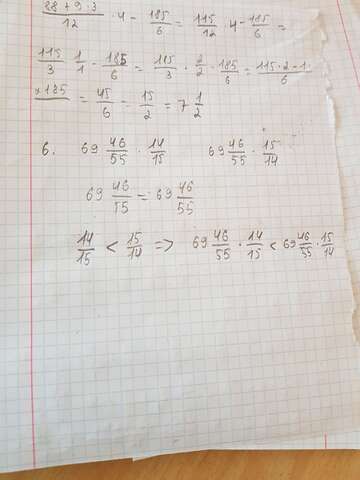 88+9·3/12 · 4 - 185/6 = 115/12 · 4 - 185/6 =
115/3 · 1/1 - 185/6 = 115/3 · 2/2 - 185/6 = 115·2-1·
×185/6 = 45/6 = 15/2 = 7 1/2
6. 69 46/55 · 14/15 69 46/55 · 15/14
69 46/55 = 69 46/55
14/15 < 15/14 => 69 46/55 · 14/15 < 69 46/55 · 15/14